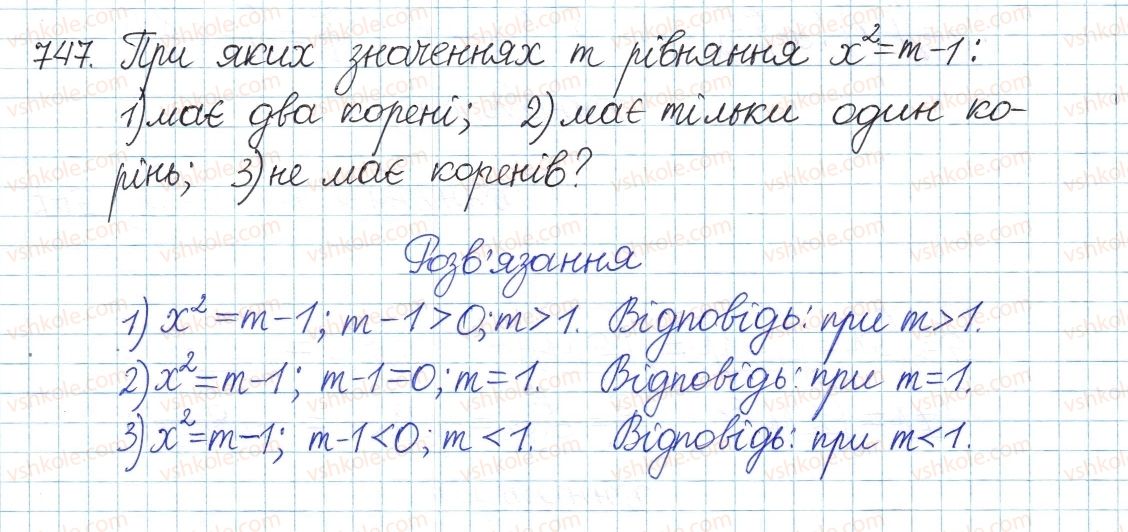 747. При яких значеннях m рівняння x²=m-1:
1) має два корені; 2) має тільки один ко-
рінь; 3) не має коренів?
Розв'язання
1) x²=m-1; m-1>0; m>1. Відповідь: при m>1.
2) x²=m-1; m-1=0; m=1. Відповідь: при m=1.
3) x²=m-1; m-1<0; m<1. Відповідь: при m<1.
vshkole.com